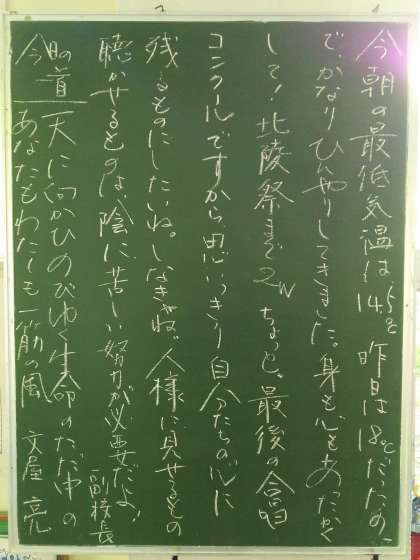 今朝の最低気温は14.5℃昨日は18℃だったの
で、かなりひんやりしてきました。身も心もあったかく
して！北陵祭まで2Wちょっと。最後の合唱
コンクールですから思いっきり自分たちの心に
残るものにしたいね。しなきゃね。人様に見せるもの
聴かせるものは、陰に苦しい努力が必要だよ！
副校長
今日の道
天に向かひのびゆく生命のただ中の
あなたもわたしも一筋の風 文屋亮